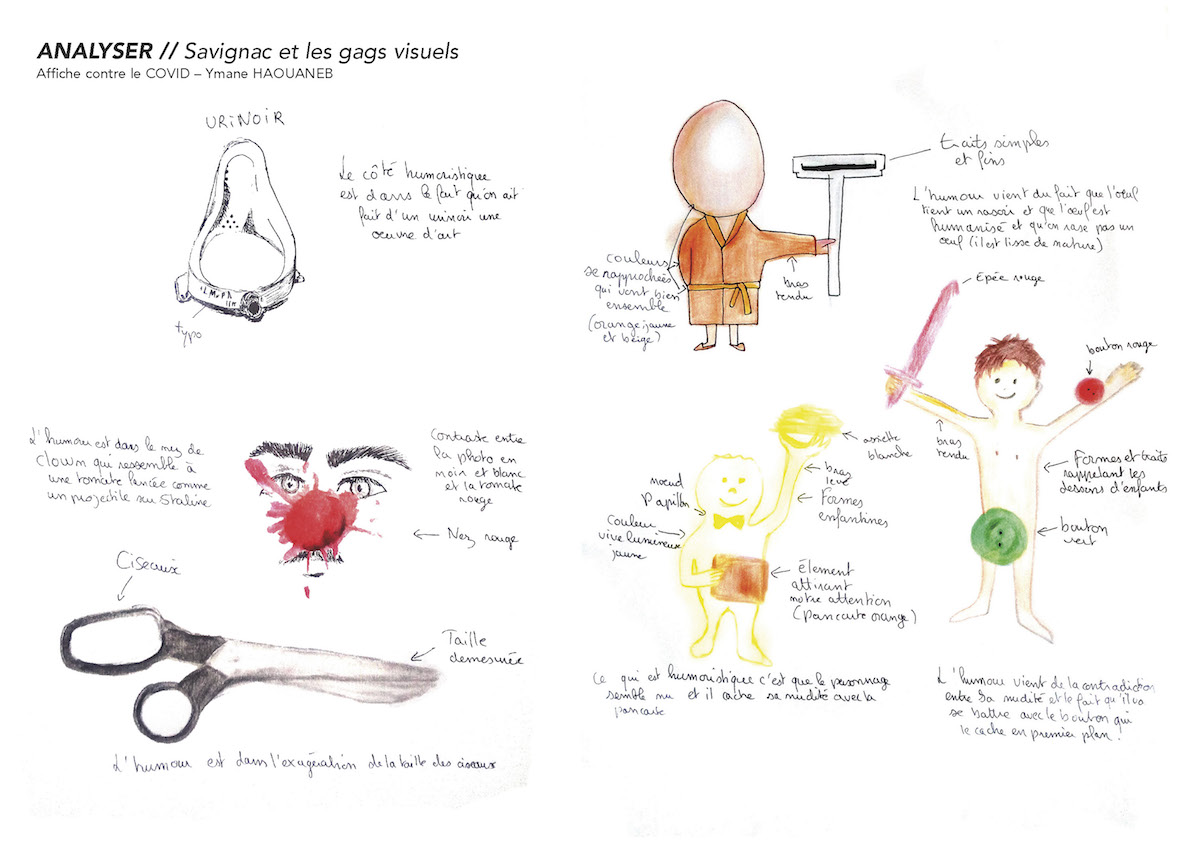 ANALYSER // Savignac et les gags visuels
Affiche contre le COVID – Ymane HAOUANEB
URiNOiR
Le côté humoristique
est dans le fait qu'on ait
fait d'un urinoir une
œuvre d'art
typo
traits simples
et fins
L'humour vient du fait que l'œuf
tient un rasoir et que l'œuf est
humanisé et qu'on rase pas un
œuf (il est lisse de nature)
couleurs
se rapprochées
qui vont bien
ensemble
(orange, jaune
et beige)
bras
tendu
Epée rouge
bouton rouge
bras
tendu
Formes et traits
rappelant les
dessins d'enfants
bouton
vert
L'humour est dans le nez de
clown qui ressemble à
une tomate lancée comme
un projectile sur Staline
Contraste entre
la photo en
noir et blanc
et la tomate
rouge
Nez rouge
assiette
blanche
bras
levé
Formes
enfantines
nœud
papillon
couleur
vive lumineuse
jaune
Élement
attirant
notre attention
(pancarte orange)
Ciseaux
Taille
demesurée
L'humour est dans l'exagération de la taille des ciseaux
Ce qui est humoristique c'est que le personnage
semble nu et il cache sa nudité avec la
pancarte
L'humour vient de la contradiction
entre sa nudité et le fait qu'il va
se battre avec le bouton qui
le cache en premier plan.